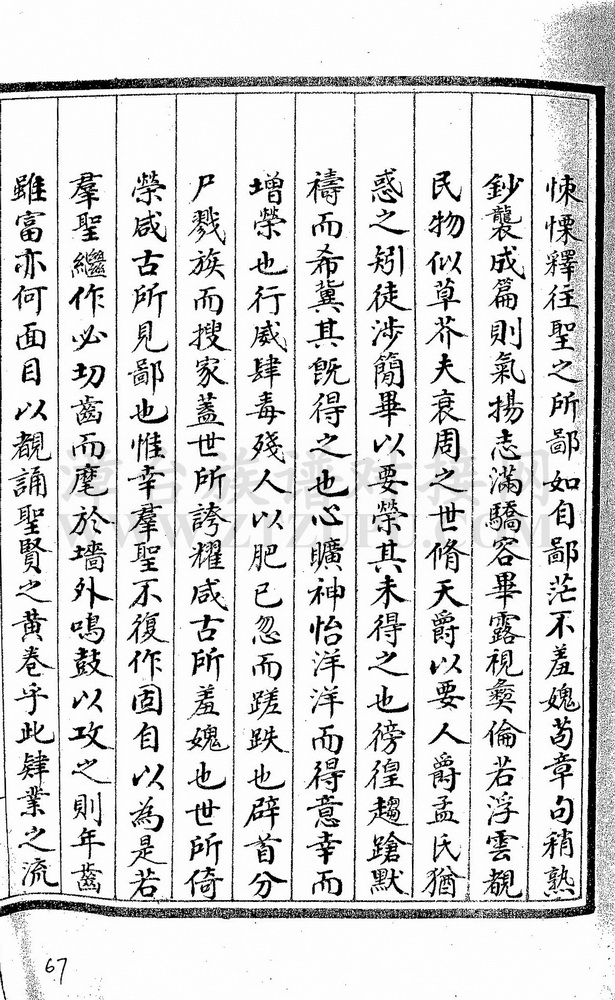 悚慄釋往聖之所鄙如自鄙茫不羞媿茍章句稍熟
鈔襲成篇則氣揚志滿驕容畢露視彜倫若浮雲覩
民物似草芥夫衰周之世脩天爵以要人爵孟氏猶
惑之矧徒涉簡畢以要榮其未得之也徬徨趨蹌默
禱而希冀其旣得之也心曠神怡洋洋而得意幸而
增榮也行威肆毒殘人以肥已忽而蹉跌也辟首分
尸戮族而搜家蓋世所誇耀咸古所羞媿也世所倚
榮咸古所見鄙也惟幸羣聖不復作固自以為是若
羣聖繼作必切齒而麾於墻外鳴鼓以攻之則年齒
雖富亦何面目以覩誦聖賢之黄卷乎此肄業之流
漳台族谱对接网
WWW.ZTZUPU.COM
67